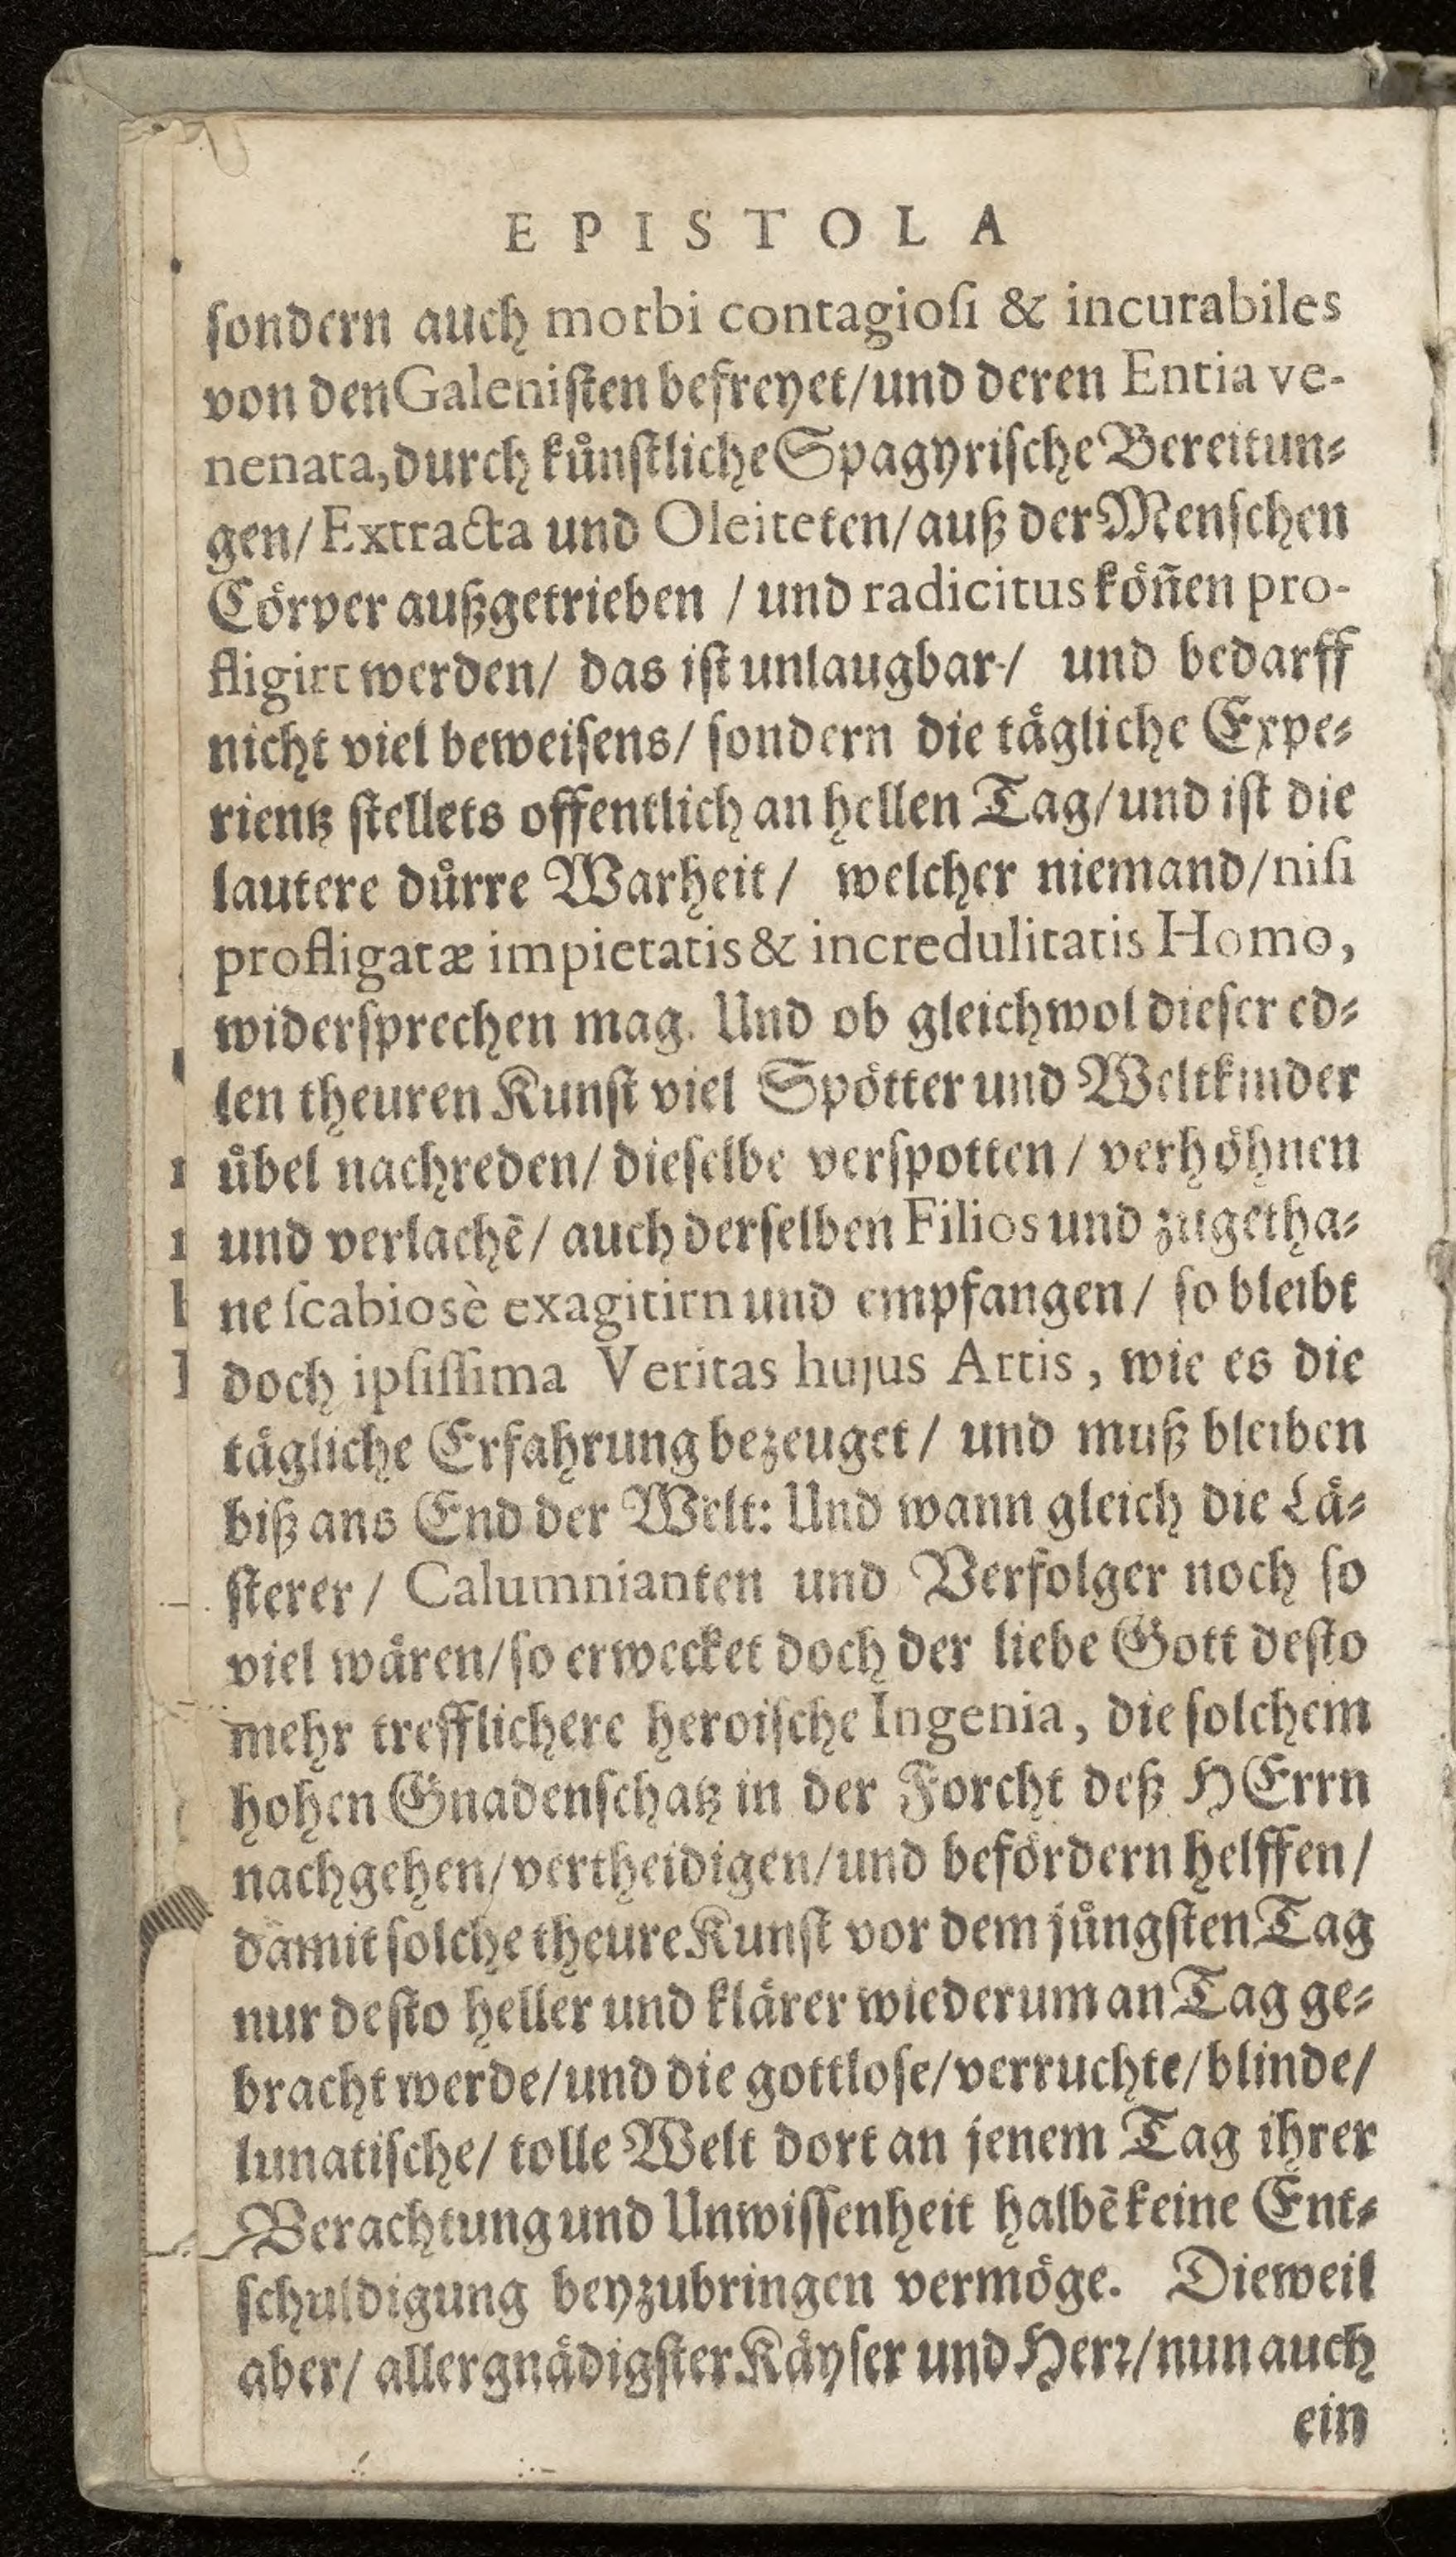 EPISTOLA
ſondern auch morbi contagioſi & incurabiles
von den Galeniſten befreyet/und deren Entia ve-
nenata, durch kuͤnſtliche Spagyriſche Bereitun⸗
gen/Extracta und Oleiteten/auß der Menſchen
Coͤrper außgetrieben / und radicitus koͤn̄en pro-
fligirt werden/ das iſt unlaugbar-/ und bedarff
nicht viel beweiſens/ ſondern die taͤgliche Expe⸗
rientz ſtellets offentlich an hellen Tag/und iſt die
lautere duͤrre Warheit/ welcher niemand/niſi
profligatæ impietatis & incredulitatis Homo,
widerſprechen mag. Und ob gleichwol dieſer ed⸗
len theuren Kunſt viel Spoͤtter und Weltkinder
uͤbel nachreden/ dieſelbe verſpotten / verhoͤhnen
und verlachē/ auch derſelben Filios und zugetha⸗
ne ſcabiosè exagitirn und empfangen/ ſo bleibt
doch ipſiſſima Veritas hujus Artis, wie es die
taͤgliche Erfahrung bezeuget/ und muß bleiben
biß ans End der Welt: Und wann gleich die Laͤ⸗
ſterer/ Calumnianten und Verfolger noch ſo
viel waͤren/ſo erwecket doch der liebe Gott deſto
mehr trefflichere heroiſche Ingenia, die ſolchem
hohen Gnadenſchatz in der Forcht deß HErrn
nachgehen/vertheidigen/und befoͤrdern helffen/
damit ſolche theure Kunſt vor dem juͤngſten Tag
nur deſto heller und klaͤrer wiederum an Tag ge⸗
bracht werde/und die gottloſe/verruchte/blinde/
lunatiſche/ tolle Welt dort an jenem Tag ihrer
Verachtung und Unwiſſenheit halbē keine Ent⸗
ſchuldigung beyzubringen vermoͤge. Dieweil
aber/ allergnaͤdigſter Kaͤyſer und Herꝛ/nun auch
ein